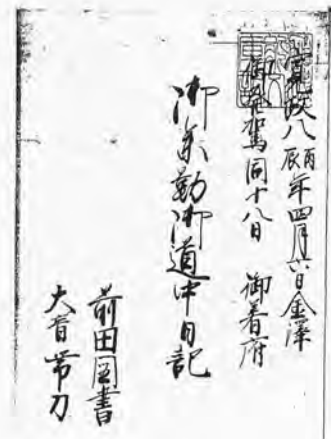 寛政八丙辰年四月六日金澤
御発駕同十八日 御着府
御参勤御道中日記
前田図書
大音帯刀